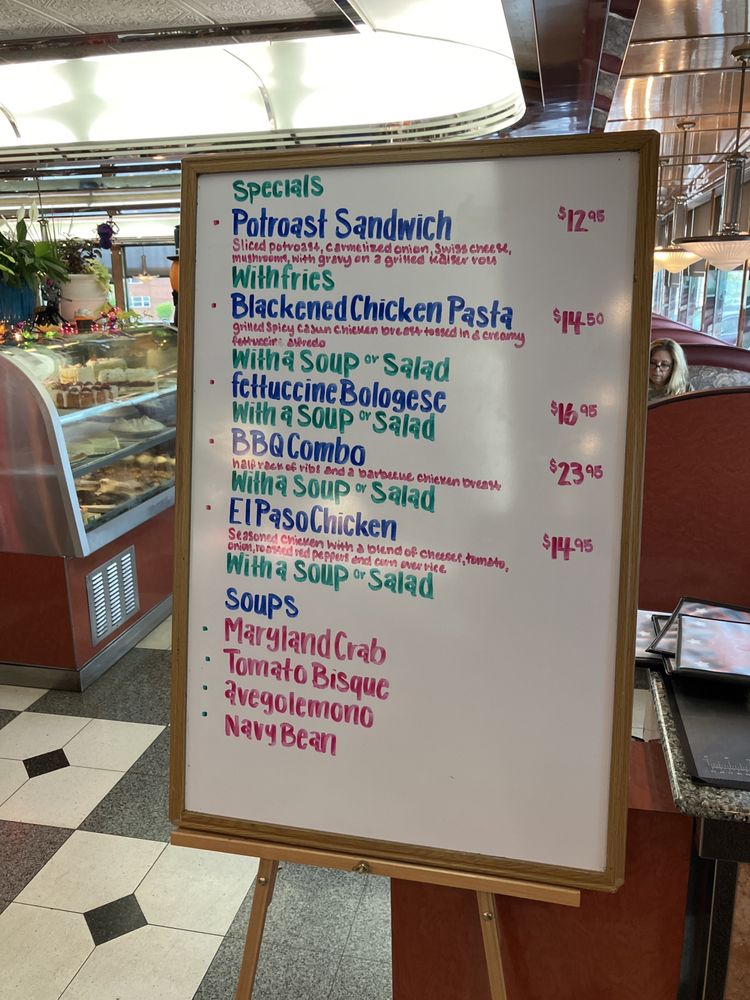 Specials
Potroast Sandwich $12.95
Sliced potroast, carmelized onion, Swiss cheese,
mushrooms, with gravy on a grilled Kaiser roll
With fries
Blackened Chicken Pasta $14.50
grilled Spicy Cajun Chicken breast tossed in a creamy
fettuccini alfredo
With a Soup or Salad
fettuccine Bologese $16.95
With a Soup or Salad
BBQ Combo $23.95
half rack of ribs and a barbecue chicken breast
With a Soup or Salad
El Paso Chicken $14.95
Seasoned Chicken with a blend of cheeses, tomato,
onion, roasted red peppers and corn over rice
With a Soup or Salad
SOUPS
Maryland Crab
Tomato Bisque
avegolemono
Navy Bean